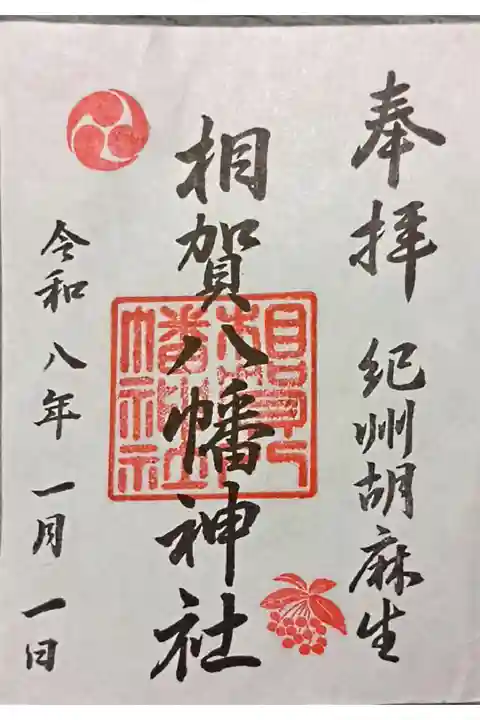 奉拝 紀州胡麻生
相賀八幡神社
相賀八幡神社
令和八年一月一日